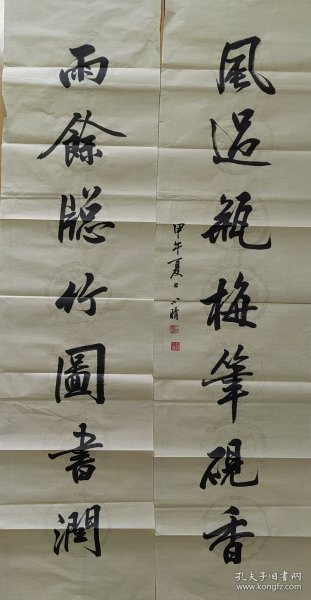 風過瓶梅筆硯香
甲午夏日
雨餘牕竹圖書潤
孔夫子旧书网